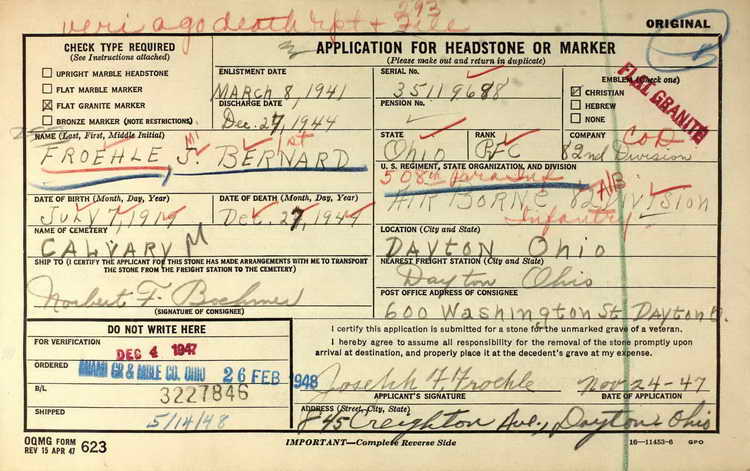 293
veri ago death rpt + File
ORIGINAL
CHECK TYPE REQUIRED
(See Instructions attached)
UPRIGHT MARBLE HEADSTONE
FLAT MARBLE MARKER
FLAT GRANITE MARKER
BRONZE MARKER (NOTE RESTRICTIONS)
APPLICATION FOR HEADSTONE OR MARKER
(Please make out and return in duplicate)
ENLISTMENT DATE
March 8, 1941
DISCHARGE DATE
Dec. 27, 1944
SERIAL No.
35119688
PENSION No.
EMBLEM (Check one)
CHRISTIAN
HEBREW
NONE
FLAT GRANITE
NAME (Last, First, Middle Initial)
FROEHLE J. BERNARD
MI 1st
STATE
Ohio
RANK
PFC
COMPANY
Co D
82nd Division
U. S. REGIMENT, STATE ORGANIZATION, AND DIVISION
508th Para Inf
AIR BORNE DIVISION
82 A/B
Infantry
DATE OF BIRTH (Month, Day, Year)
July 7, 1917
DATE OF DEATH (Month, Day, Year)
Dec. 27, 1944
NAME OF CEMETERY
CALVARY M
LOCATION (City and State)
DAYTON Ohio
SHIP TO (I CERTIFY THE APPLICANT FOR THIS STONE HAS MADE ARRANGEMENTS WITH ME TO TRANSPORT
THE STONE FROM THE FREIGHT STATION TO THE CEMETERY)
Norbert F. Boehmer
(SIGNATURE OF CONSIGNEE)
NEAREST FREIGHT STATION (City and State)
Dayton Ohio
POST OFFICE ADDRESS OF CONSIGNEE
600 Washington St Dayton O.
DO NOT WRITE HERE
FOR VERIFICATION
DEC 4 1947
ORDERED
MIAMI GR & MBLE CO. OHIO 26 FEB 1948
B/L
3227846
SHIPPED
5/14/48
I certify this application is submitted for a stone for the unmarked grave of a veteran.
I hereby agree to assume all responsibility for the removal of the stone promptly upon
arrival at destination, and properly place it at the decedent's grave at my expense.
Joseph F. Froehle Nov-24-47
APPLICANT'S SIGNATURE
DATE OF APPLICATION
ADDRESS (Street, City, State)
845 Creighton Ave., Dayton Ohio
OQMG FORM
REV 15 APR 47 623
IMPORTANT—Complete Reverse Side
16—11453-6 GPO